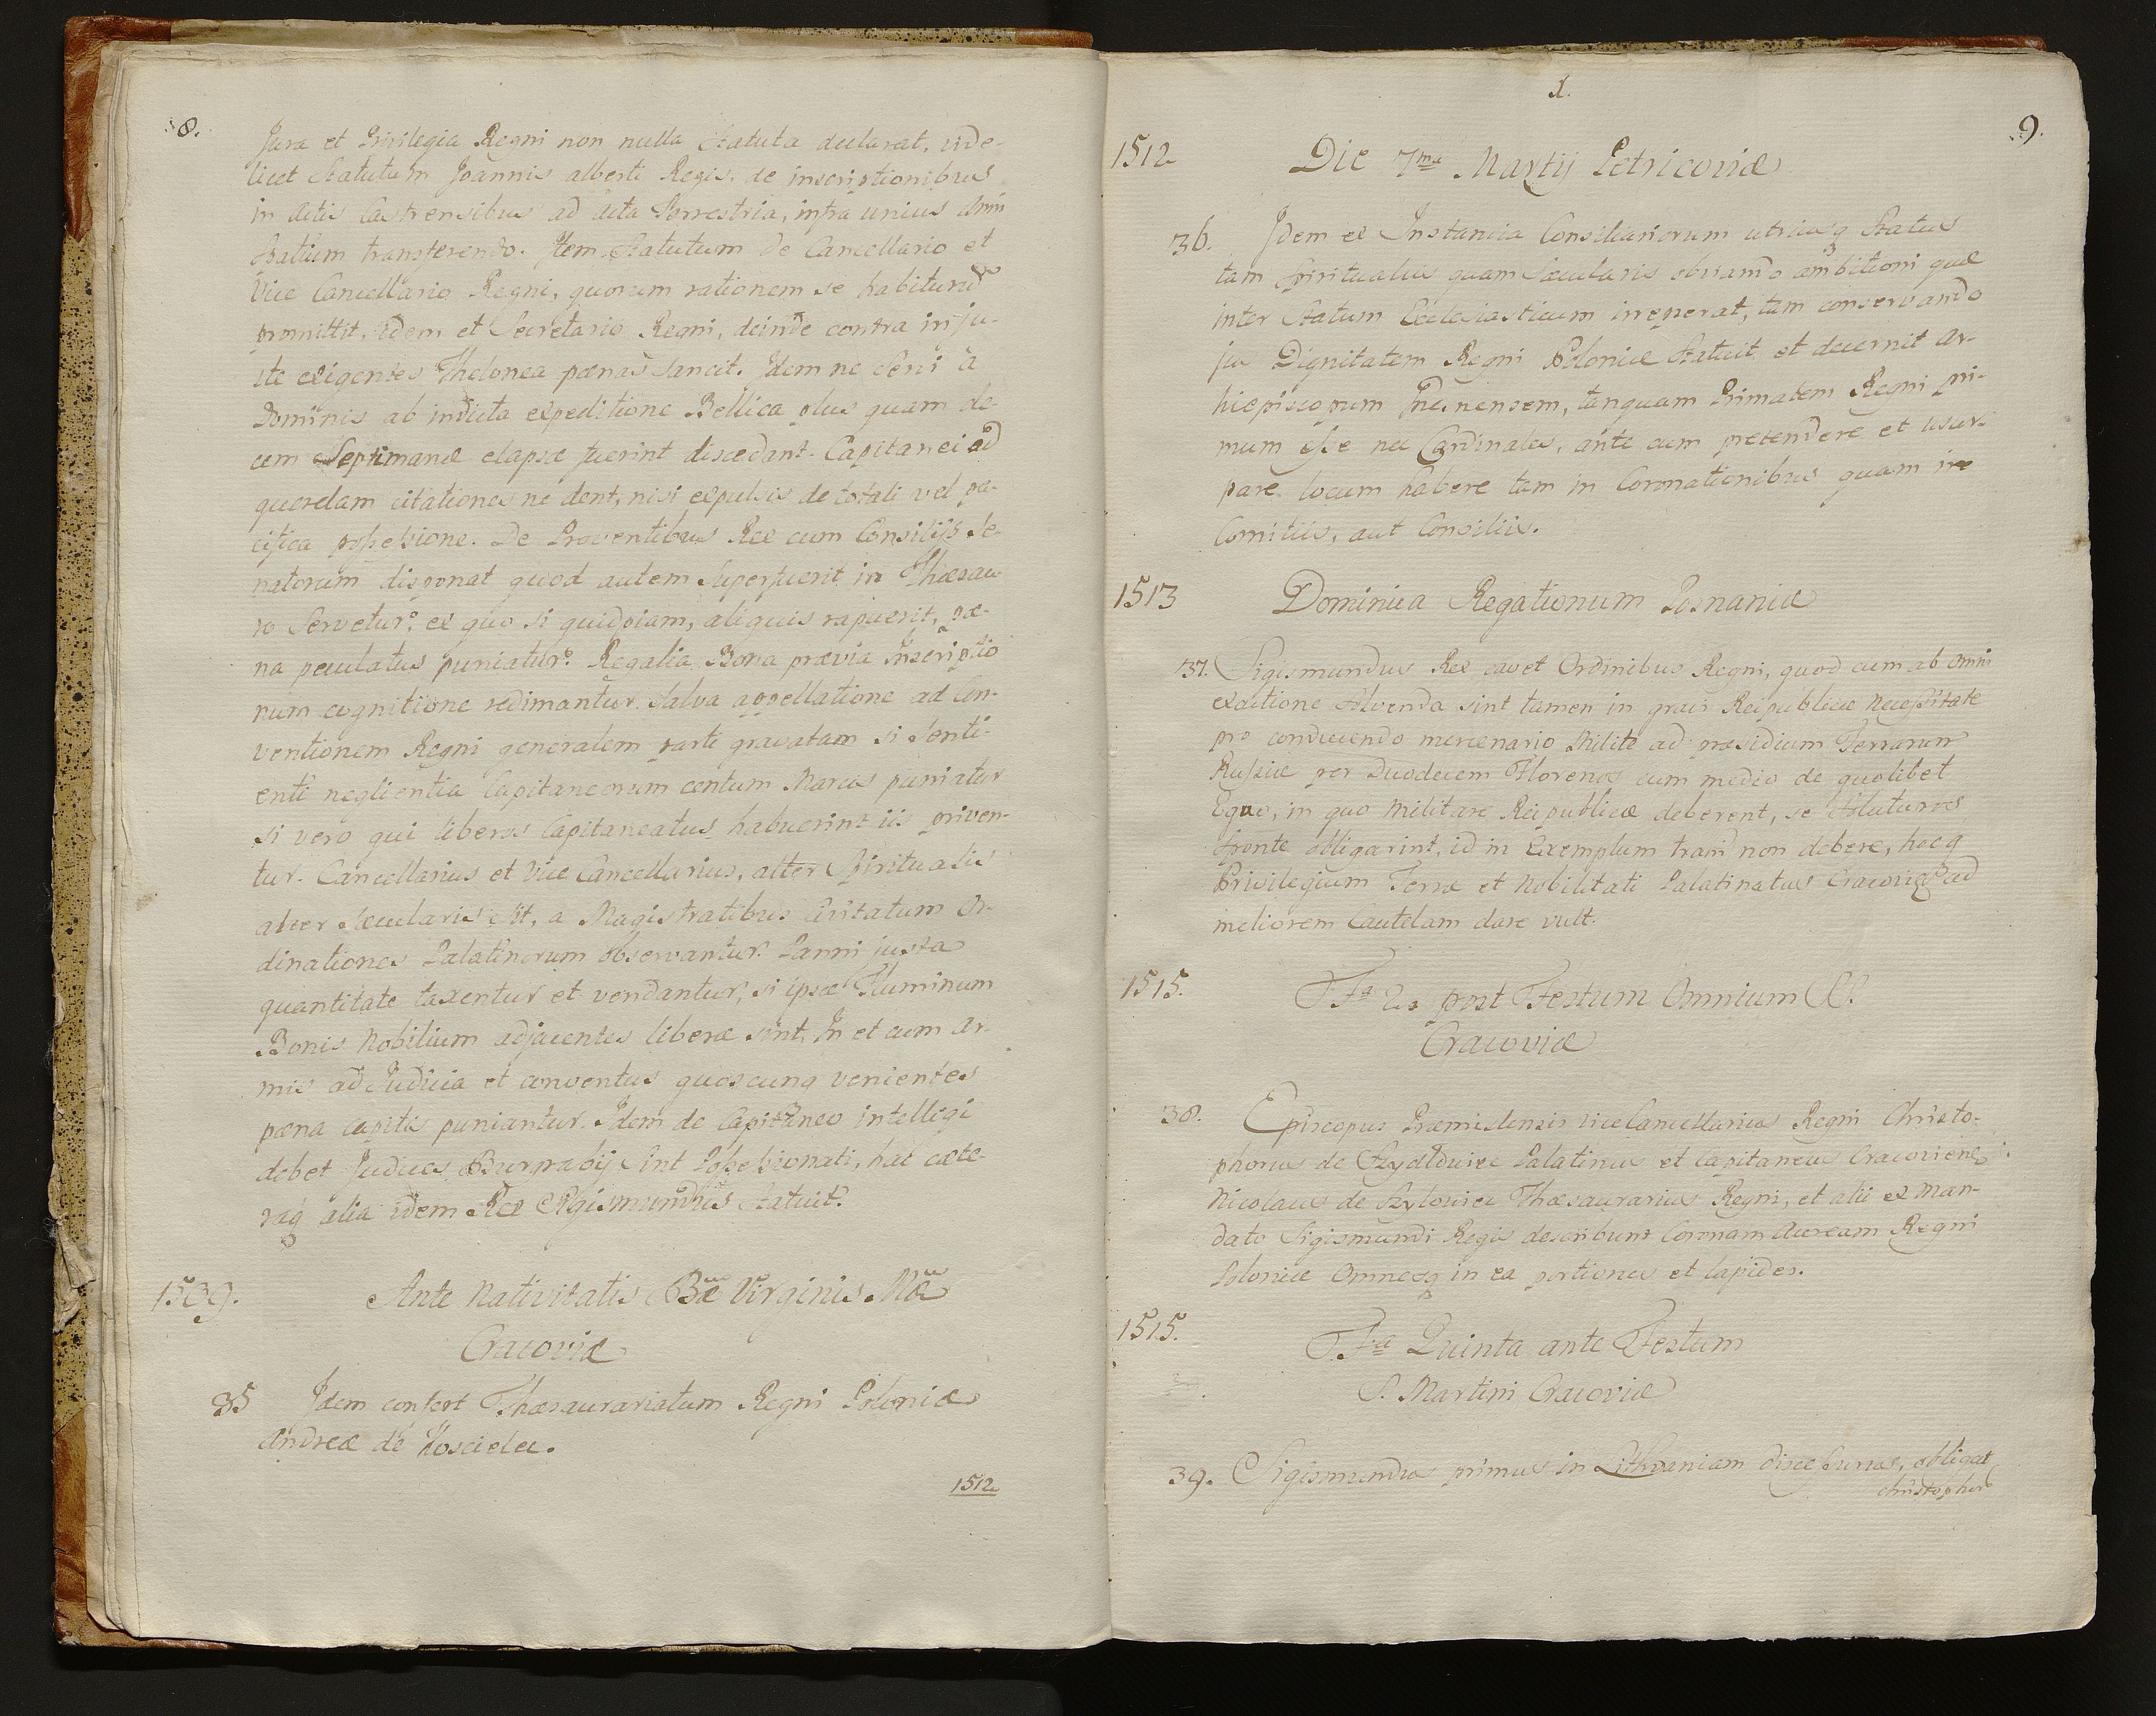 8.
Jura et Privilegia Regni non nulla Statuta declarat, vide-
licet Statutum Joannis alberti Regis. de inscriptionibus
in Actis Castrensibus ad Acta Terrestria, infra unius Anni
Spatium transferendo. Item Statutum de Cancellario et
Vice Cancellario Regni, quorum rationem se habiturum
promittit, idem et Secretario Regni, deinde contra inju-
ste exigentes Thelonea pœnas sancit. Idem ne Servi à
Dominis ab indicta expeditione Bellica plus quam de-
cem Septimanæ elapsæ fuerint discedant. Capitanei ad
querelam citationes ne dent, nisi expulsis de totali vel pa-
cifica possessione. De Proventibus Rex cum Consilijs Se-
natorum disponat quod autem Superfuerit in Thæsau-
ro Servetur, ex quo si quidpiam, aliquis rapuerit, pæ-
na peculatus puniatur. Regalia Bona prævia Inscriptio
num cognitione redimantur. Salva appellatione ad Con-
ventionem Regni generalem parti gravatam si Senti-
enti neglientia Capitaneorum centum Marcis puniatur
si vero qui liberos Capitaneatus habuerint iis priven-
tur. Cancellarius et Vice Cancellarius, alter Spiritualis
alter Sæcularis sit, a Magistratibus Civitatum Or-
dinationes Palatinorum observantur. Panni justa
quantitate taxentur et vendantur, si ipsæ Fluminum
Bonis Nobilium adjacentes liberæ sint, In et cum Ar-
mis ad Judicia et conventus quoscunq venientes
pœna Capitis puniantur. Idem de Capitaneo intelligi
debet Judices Burgrabij sint Possessionati, hæc cæte-
raq alia idem Rex Sigismundus Statuit.
1509.
Ante Nativitatis Bæ Virginis Mæ
Cracoviæ
35 Idem confert Thæsaurariatum Regni Poloniæ
Andreæ de Koscielec.
1512
1.
9.
1512
Die 7ma Martij Petricoviæ
36. Idem ex Instantia Consiliariorum utriusq Status
tam Spiritualis quam Sæcularis obviando ambitioni quæ
inter Statum Ecclesiasticum irrepserat, tum conservando
jus Dignitatem Regni Poloniæ Statuit et decernit Ar-
hiepiscopum Gnesnensem, tanquam Primatem Regni pri-
mum esse nec Cardinales, ante eum pretendere et usur-
pare locum habere tam in Coronationibus quam in
Comitiis, aut Consiliis.
1513
Dominica Rogationum Posnaniæ
37. Sigismundus Rex cavet Ordinibus Regni, quod cum ab omni
exactione Solvenda sint tamen in gravi Reipublicæ Necessitate
pro conducendo mercenario Milite ad præsidium Terrarum
Russiæ per Duodecem Florenos cum medio de quolibet
Equo, in quo Militare Reipublicæ deberent, se Soluturos
sponte obligarint, id in Exemplum trahi non debere, hocq
Privilegium Terræ et Nobilitati Palatinatus Cracoviæ ad
meliorem Cautelam dare vult.
1515.
Fa 2a post Festum Omnium SS.
Cracoviæ
38. Episcopus Præmislensis viceCancellarius Regni Christo-
phorus de Szydlowiec Palatinus et Capitaneus Cracoviens
Nicolaus de Szylowiec Thæsaurarius Regni, et alii ex Man-
dato Sigismundi Regis describunt Coronam Auream Regni
Poloniæ Omnesq in ea portiones et lapides.
1515.
Fa Quinta ante Festum
S. Martini Cracoviæ
39. Sigismundus primus in Lithvaniam discessurus, obligat
Christophor